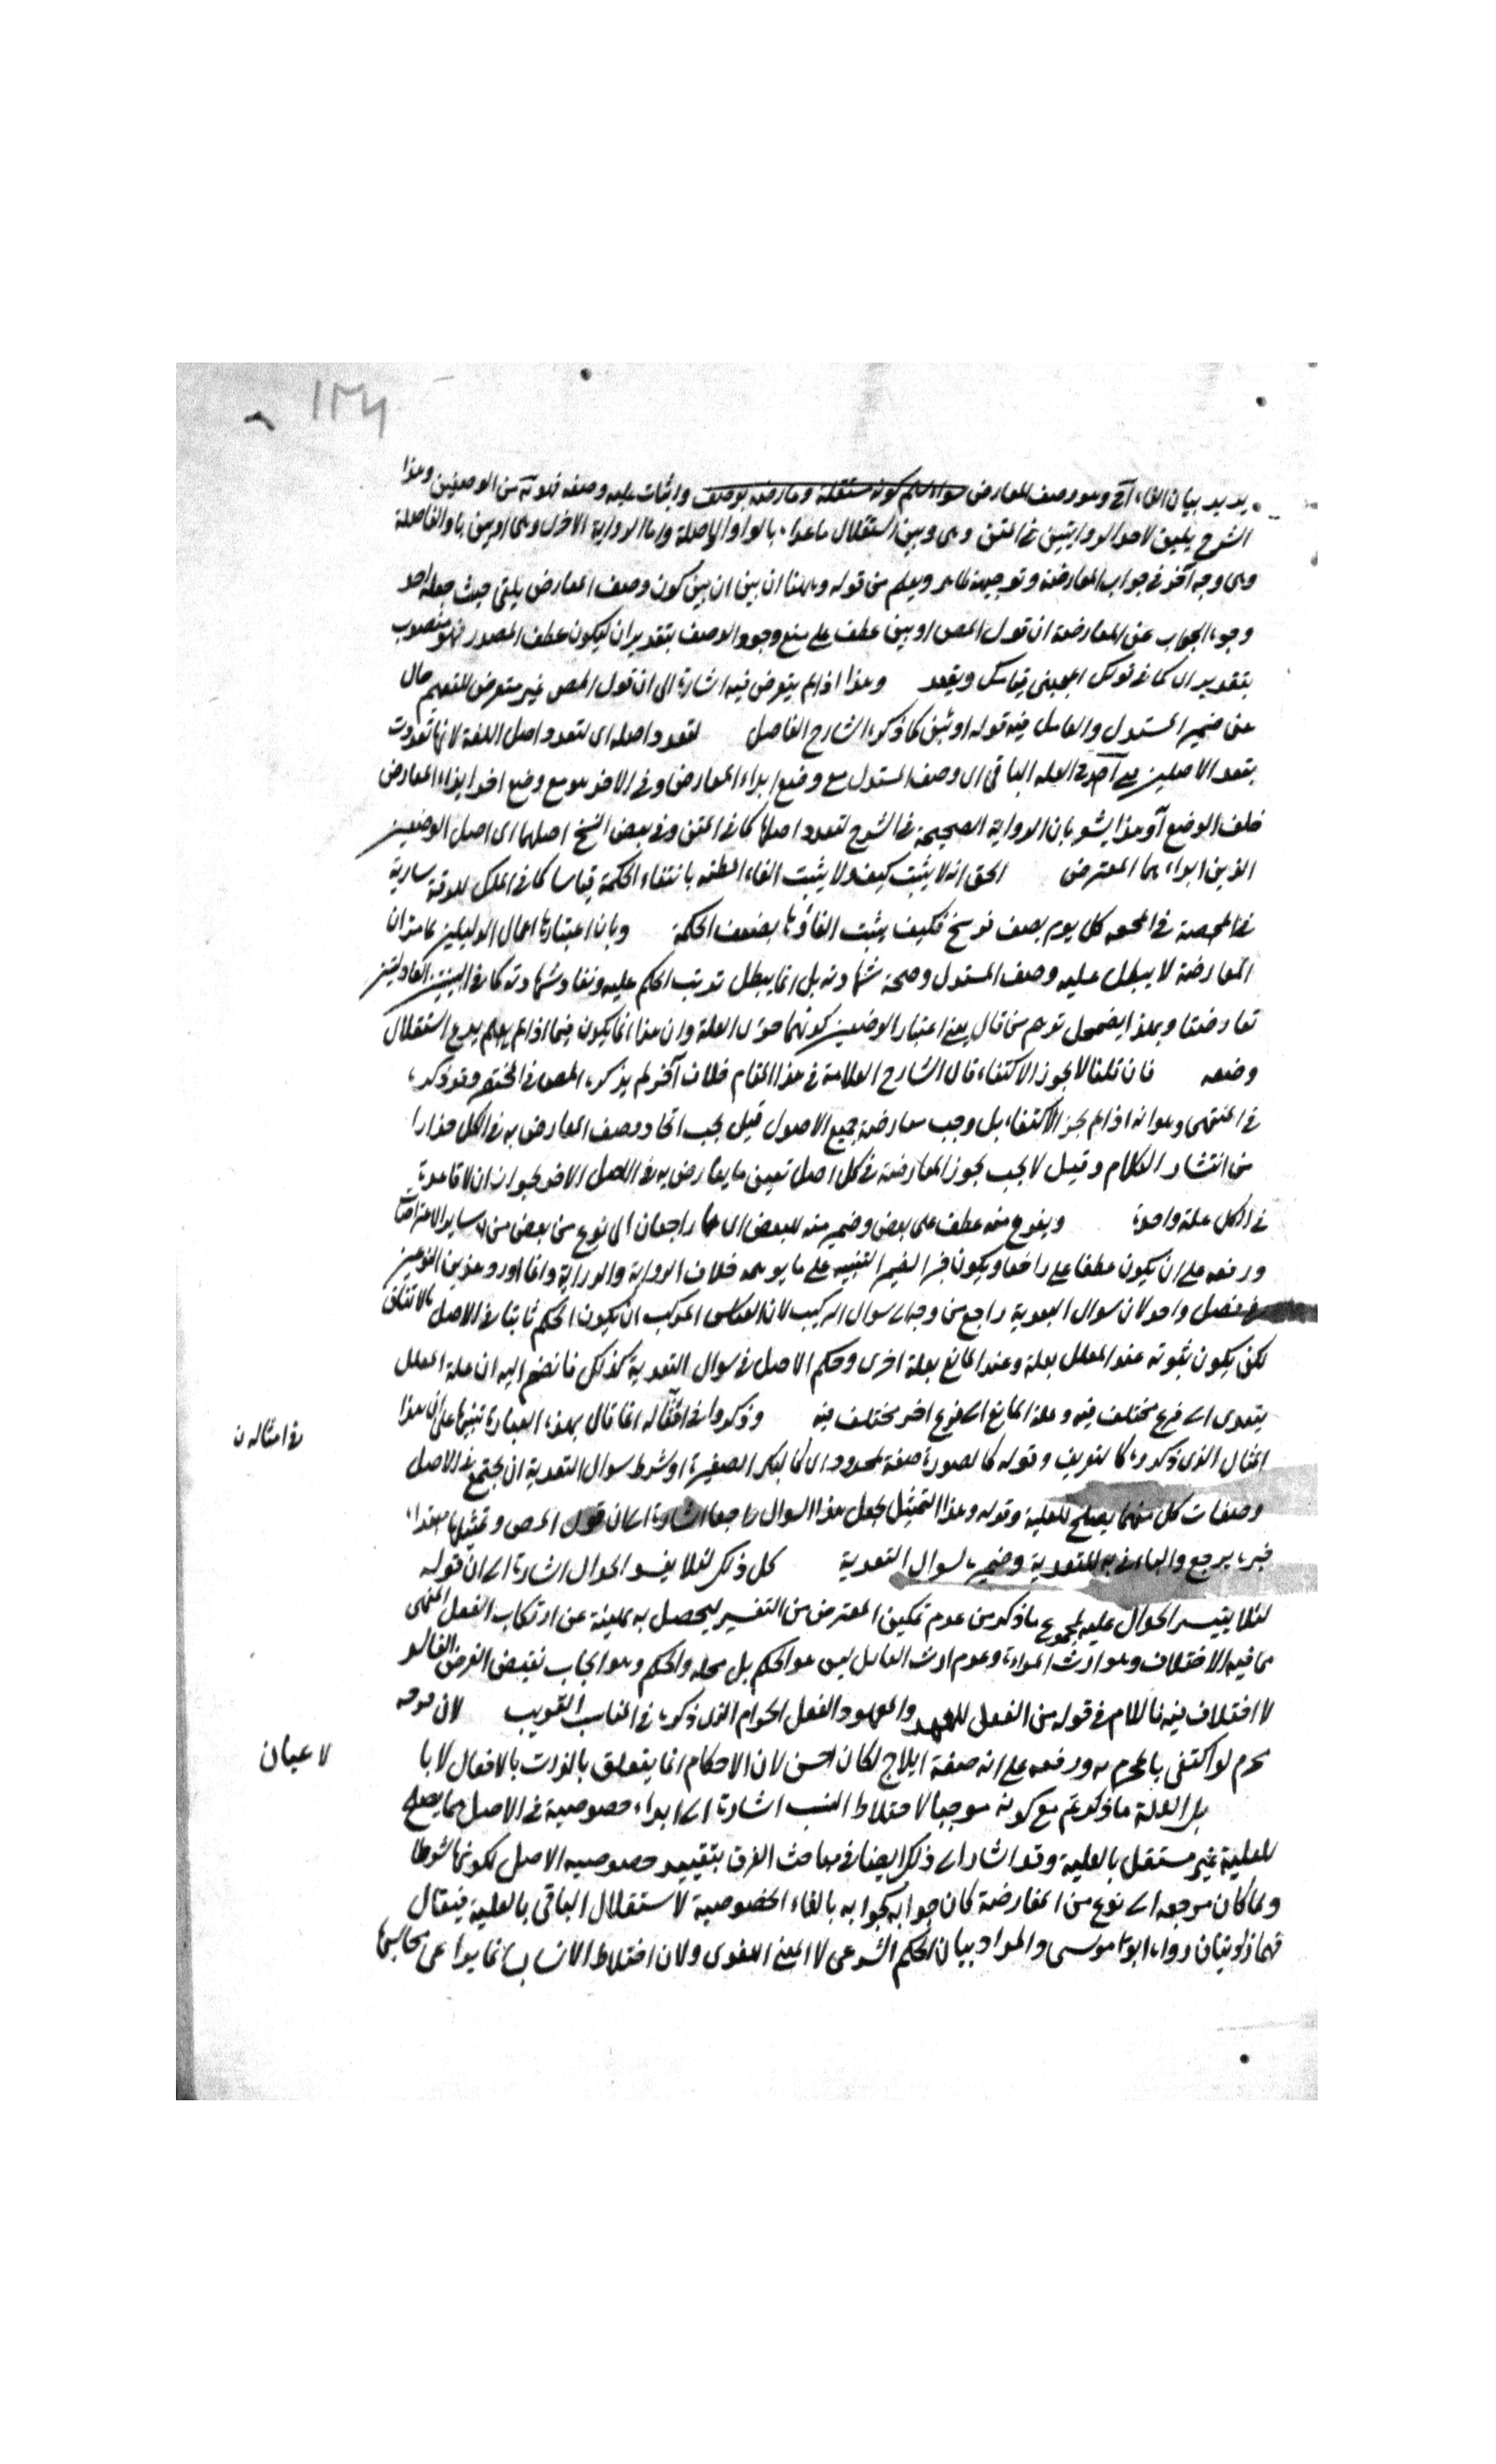 ١٣٤
يريد بيان الغاء آخر وهو وصف المعارض سواء سلم كونه مستقلة وعارضه بوصف واثبات علية وصفه فلا بد من الوصفين وهذا
الشرح يليق لاحد الروايتين في المتن وهي وبين استقلال ماعداه بالواو الواصلة واما الرواية الاخرى وهي او يبين باو الفاصلة
وهي وجه آخر في جواب المعارضة وتوجيهه ظاهر ويعلم من قوله وههنا ان بين ان بين كون وصف المعارض يلغى حيث جعله احد
وجوه الجواب عن المعارضة ان قول المص او بين عطف على منع وجود الوصف بتقدير ان ليكون عطف المصدر فهو منصوب
بتقدير ان كما في قولك اعجبني قيامك ويقعد وهذا اذا لم يتعرض فيه اشارة الى ان قول المص غير متعرض للتعميم حال
عن ضمير المستدل والعامل فيه قوله او يبين كما ذكره الشارح الفاضل لتعدد اصله اى لتعدد اصل اللغة لانها تعددت
بتعدد الاصلين في احدى العلة الباقي اى وصف المستدل مع وضع ابداه المعارض وفي الاخر هو مع وضع اخر ابداه المعارض
خلف الوضع آ وهذا يشعر بان الرواية الصحيحة في الشرح لتعدد اصلها كما في المتن وفي بعض النسخ اصلهما اى اصل الوضعين
الذين ابداهما المعترض الحق انه لا يثبت كيف ولا يثبت الغاء المظنة بانتفاء الحكمة قياسا كما في الملك
كل يوم نصف فرسخ فكيف يثبت الغاؤها بضعف الحكمة وبان اعتبارها اعمال الدليلين
المعارضة لا يبطل علية وصف المستدل وصحة شهادته بل انما يبطل ترتب الحكم عليه ونفاذ شهادته كما في البينتين العادلتين
تعارضتا وبهذا يضمحل توهم من قال يعني اعتبار الوضعين كونهما جزئى العلة وان هذا انما يكون فيما اذا لم يدع استقلال
وضعه فان قلنا لا يجوز الاكتفاء قال الشارح العلامة في هذا المقام خلاف آخر لم يذكره المص في المختصر وقد ذكره
في المنتهى وهو انه اذا لم يجز الاكتفاء بل وجب معارضة جميع الاصول قيل يجب اتحاد وصف المعارض به في الكل حذارا
من انتشار الكلام وقيل لا يجب بل يجوز المعارضة في كل اصل تعين ما يعارض به في الاصل الاخر لجواز ان لا
في الكل علة واحدة وبنوع منه عطف على بعض وضمير منه للبعض اى هما راجعان الى نوع من بعض من سائر الاعتراضات
ورفعه على ان يكون عطفا على راجعا ويكون جزا لضمير التثنية على ما يوهمه خلاف الرواية والدراية وانما اورد هذين النوعين
في فصل واحد لان سوال التعدية راجع من وجه الى سوال التركيب لان القياس المركب ان يكون الحكم ثابتا في الاصل بالاتفاق
لكن يكون ثبوته عند المعلل بعلة وعند المانع بعلة اخرى وحكم الاصل في سوال التعدية كذلك فانضم اليه ان علة المعلل
يتعدى الى فرع مختلف فيه وعلة المانع الى فرع اخر مختلف فيه وذكروا في امثاله انما قال بهذه العبارة تنبيها على ان هذا
في امثاله ن
المثال الذي ذكروه كالتعريف وقوله كالصورة صفة لحدود اى كالبكر الصغيرة او شرط سوال التعدية ان يجتمع في الاصل
وصفان كل منهما يصلح للعلية وقوله وهذا التمثيل يجعل هذا السوال راجعا اشارة الى ان قول المص وتمثيلها مبتدا
خبره يرجع والباء في به للتعدية وضميره لسوال التعدية كل ذلك لئلا يفسد الحوال اشارة الى ان قوله
لئلا يتيسر الحوال عليه لمجموع ما ذكر من عدم تمكين المعترض من التغيير ليحصل به بمعينة عن ارتكاب الفعل المنهى
ما فيه الاختلاف وهو ارث المراءة وعدم ارث القاتل ليس هو الحكم بل محله والحكم وهو ايجاب نقيض الغرض الفاسد
لا اختلاف فيه فاللام في قوله من الفعل للعهد والمعهود الفعل الحرام الذى ذكره في المناسب الغريب لان فرجه
محرم لو اكتفى بالمحرم به ورفعه على انه صفة ايلاج لكان احسن لان الاحكام انما يتعلق بالذات بالافعال لا با
لا عيان
بل العلة ما ذكرتم مع كونه موجبا لاختلاط النسب اشارة الى ابداء خصوصية في الاصل مما يصلح
للعلية غير مستقل بالعلية وقد اشار الى ذلك ايضا في مباحث الفرق بتقييد خصوصيه الاصل بكونها شرطا
ولما كان مرجعه الى نوع من المعارضة كان جوابه كجوابه بالغاء الخصوصية لاستقلال الباقي بالعلية فيقال
فهما زانيتان رواه ابو موسى والمراد بيان الحكم الشرعي لا المعنى اللغوى ولان اختلاط الانساب انما يراعى